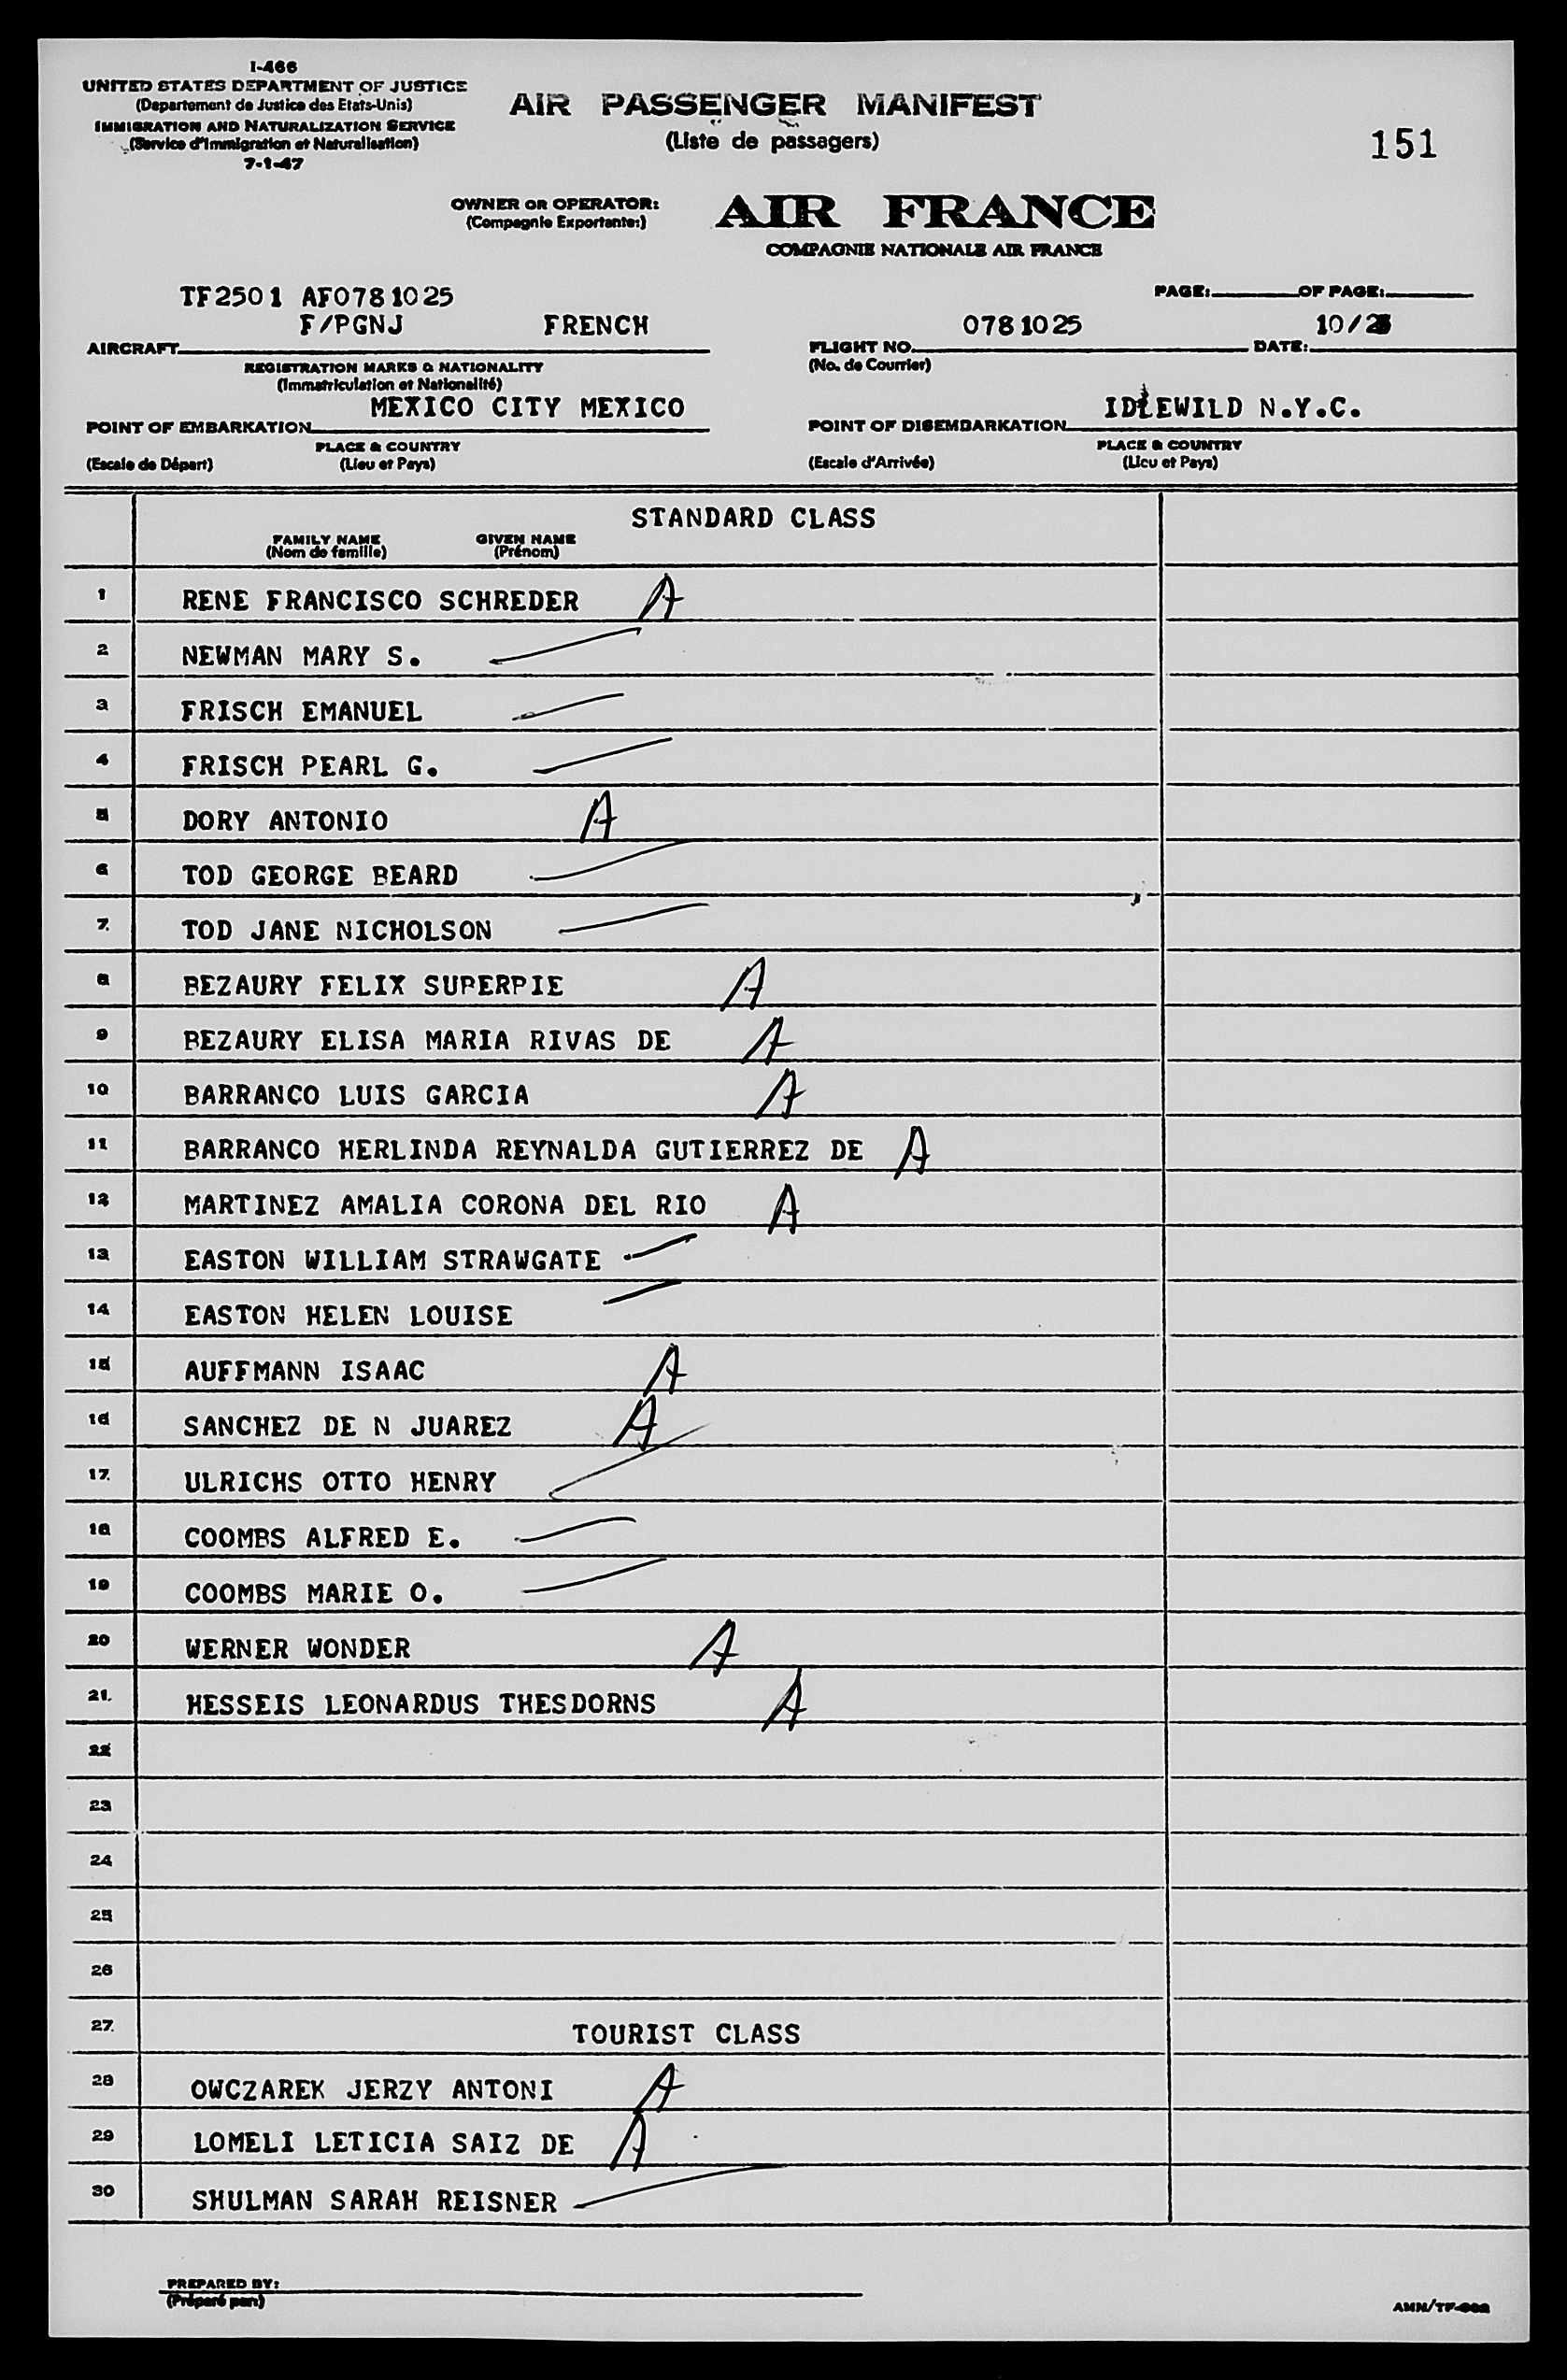 I-466
UNITED STATES DEPARTMENT OF JUSTICE
(Departement de Justice des Etats-Unis)
IMMIGRATION AND NATURALIZATION SERVICE
(Service d'Immigration et Naturalisation)
7-1-47
AIR PASSENGER MANIFEST
(Liste de passagers)
151
OWNER OR OPERATOR:
(Compagnie Exportante:)
AIR FRANCE
COMPAGNIE NATIONALE AIR FRANCE
TF2501 AF0781025
PAGE: OF PAGE:
F/PGNJ FRENCH 0781025 10/
AIRCRAFT FLIGHT NO. DATE:
REGISTRATION MARKS & NATIONALITY (No. de Courrier)
(Immatriculation et Nationalité)
MEXICO CITY MEXICO IDLEWILD N.Y.C.
POINT OF EMBARKATION POINT OF DISEMBARKATION
PLACE & COUNTRY PLACE & COUNTRY
(Escale de Départ) (Lieu et Pays) (Escale d'Arrivée) (Lieu et Pays)
STANDARD CLASS
FAMILY NAME GIVEN NAME
(Nom de famille) (Prénom)
1 RENE FRANCISCO SCHREDER A
2 NEWMAN MARY S.
3 FRISCH EMANUEL
4 FRISCH PEARL G.
5 DORY ANTONIO A
6 TOD GEORGE BEARD
7 TOD JANE NICHOLSON
8 BEZAURY FELIX SUPERPIE A
9 BEZAURY ELISA MARIA RIVAS DE A
10 BARRANCO LUIS GARCIA A
11 BARRANCO HERLINDA REYNALDA GUTIERREZ DE A
12 MARTINEZ AMALIA CORONA DEL RIO A
13 EASTON WILLIAM STRAWGATE
14 EASTON HELEN LOUISE
15 AUFFMANN ISAAC A
16 SANCHEZ DE N JUAREZ A
17 ULRICHS OTTO HENRY
18 COOMBS ALFRED E.
19 COOMBS MARIE O.
20 WERNER WONDER A
21 HESSEIS LEONARDUS THESDORNS A
22
23
24
25
26
27 TOURIST CLASS
28 OWCZAREK JERZY ANTONI A
29 LOMELI LETICIA SAIZ DE A
30 SHULMAN SARAH REISNER
PREPARED BY:
(Préparé par:)